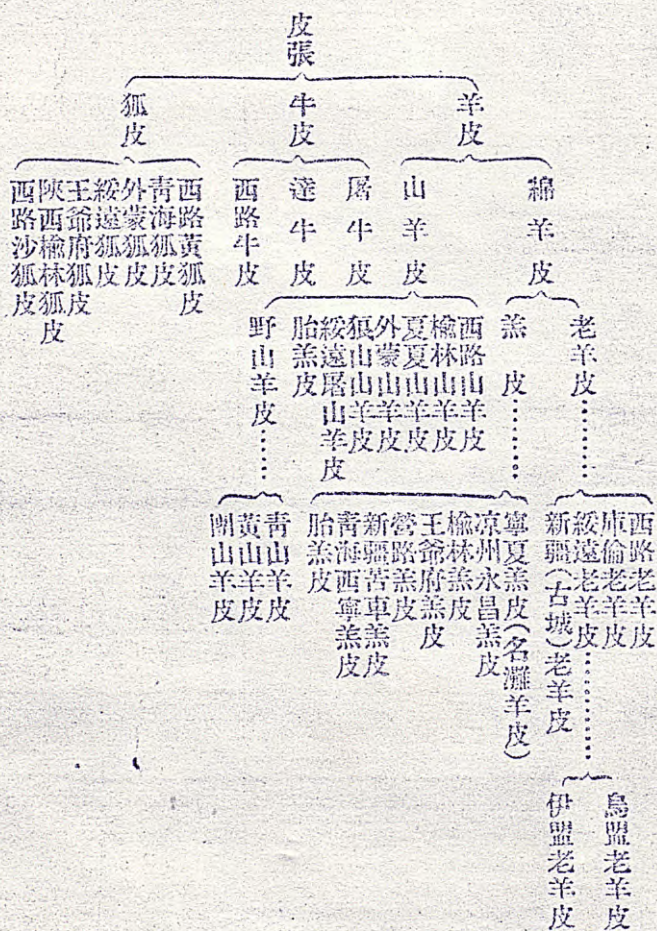 皮張
羊皮
牛皮
狐皮
綿羊皮
山羊皮
屠牛皮
達牛皮
西路牛皮
西路黃狐皮
青海狐皮
外蒙狐皮
綏遠狐皮
王爺府狐皮
陝西榆林狐皮
西路沙狐皮
老羊皮………
羔皮………
西路山羊皮
榆林山羊皮
夏夏山羊皮
外蒙山羊皮
狼山山羊皮
綏遠屠山羊皮
胎羔皮
野山羊皮……
西路老羊皮
庫倫老羊皮
綏遠老羊皮………
新疆(古城)老羊皮
寧夏羔皮(名灘羊皮)
凉州永昌羔皮
榆林羔皮
王爺府羔皮
營路羔皮
新疆苦車羔皮
青海西寧羔皮
胎羔皮
青山羊皮
黃山羊皮
山羊皮
烏盟老羊皮
伊盟老羊皮